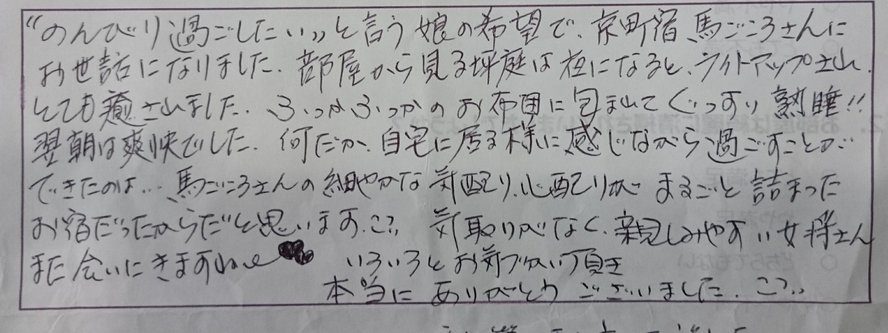 “のんびり過ごしたい„と言う娘の希望で、京町宿 馬ごころさんに
お世話になりました。部屋から見る坪庭は夜になると、ライトアップされ
とても癒されました。ふっかふっかのお布団に包まれてぐっすり熟睡!!
翌朝は爽快でした。何だか、自宅に居る様に感じながら過ごすことが
できたのは… 馬ごころさんの細やかな気配り、心配りがまるごと詰まった
お宿だったからだと思います。気取りがなく、親しみやすい女将さん
また会いにきますね
いろいろとお気づかい頂き
本当にありがとうございました。